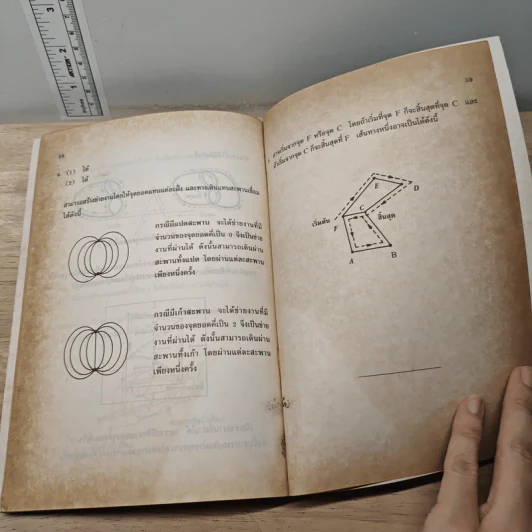 58
4. (1) ได้
(2) ได้
สามารถสร้างข่ายงานโดยให้จุดยอดแทนแต่ละฝั่ง และทางเดินแทนสะพานเชื่อม
ได้ดังนี้
กรณีมีแปดสะพาน จะได้ข่ายงานที่มี
จำนวนของจุดยอดคี่เป็น 0 จึงเป็นข่าย
งานที่ผ่านได้ ดังนั้นสามารถเดินผ่าน
สะพานทั้งแปด โดยผ่านแต่ละสะพาน
เพียงหนึ่งครั้ง
กรณีมีเก้าสะพาน จะได้ข่ายงานที่มี
จำนวนของจุดยอดคี่เป็น 2 จึงเป็นข่าย
งานที่ผ่านได้ ดังนั้นสามารถเดินผ่าน
สะพานทั้งเก้า โดยผ่านแต่ละสะพาน
เพียงหนึ่งครั้ง
59
งานเริ่มจากจุด F หรือจุด C โดยถ้าเริ่มที่จุด F ก็จะสิ้นสุดที่จุด C และ
ถ้าเริ่มจากจุด C ก็จะสิ้นสุดที่ F เส้นทางหนึ่งอาจเป็นได้ดังนี้
E
D
เริ่มต้น
C
สิ้นสุด
F
A
B